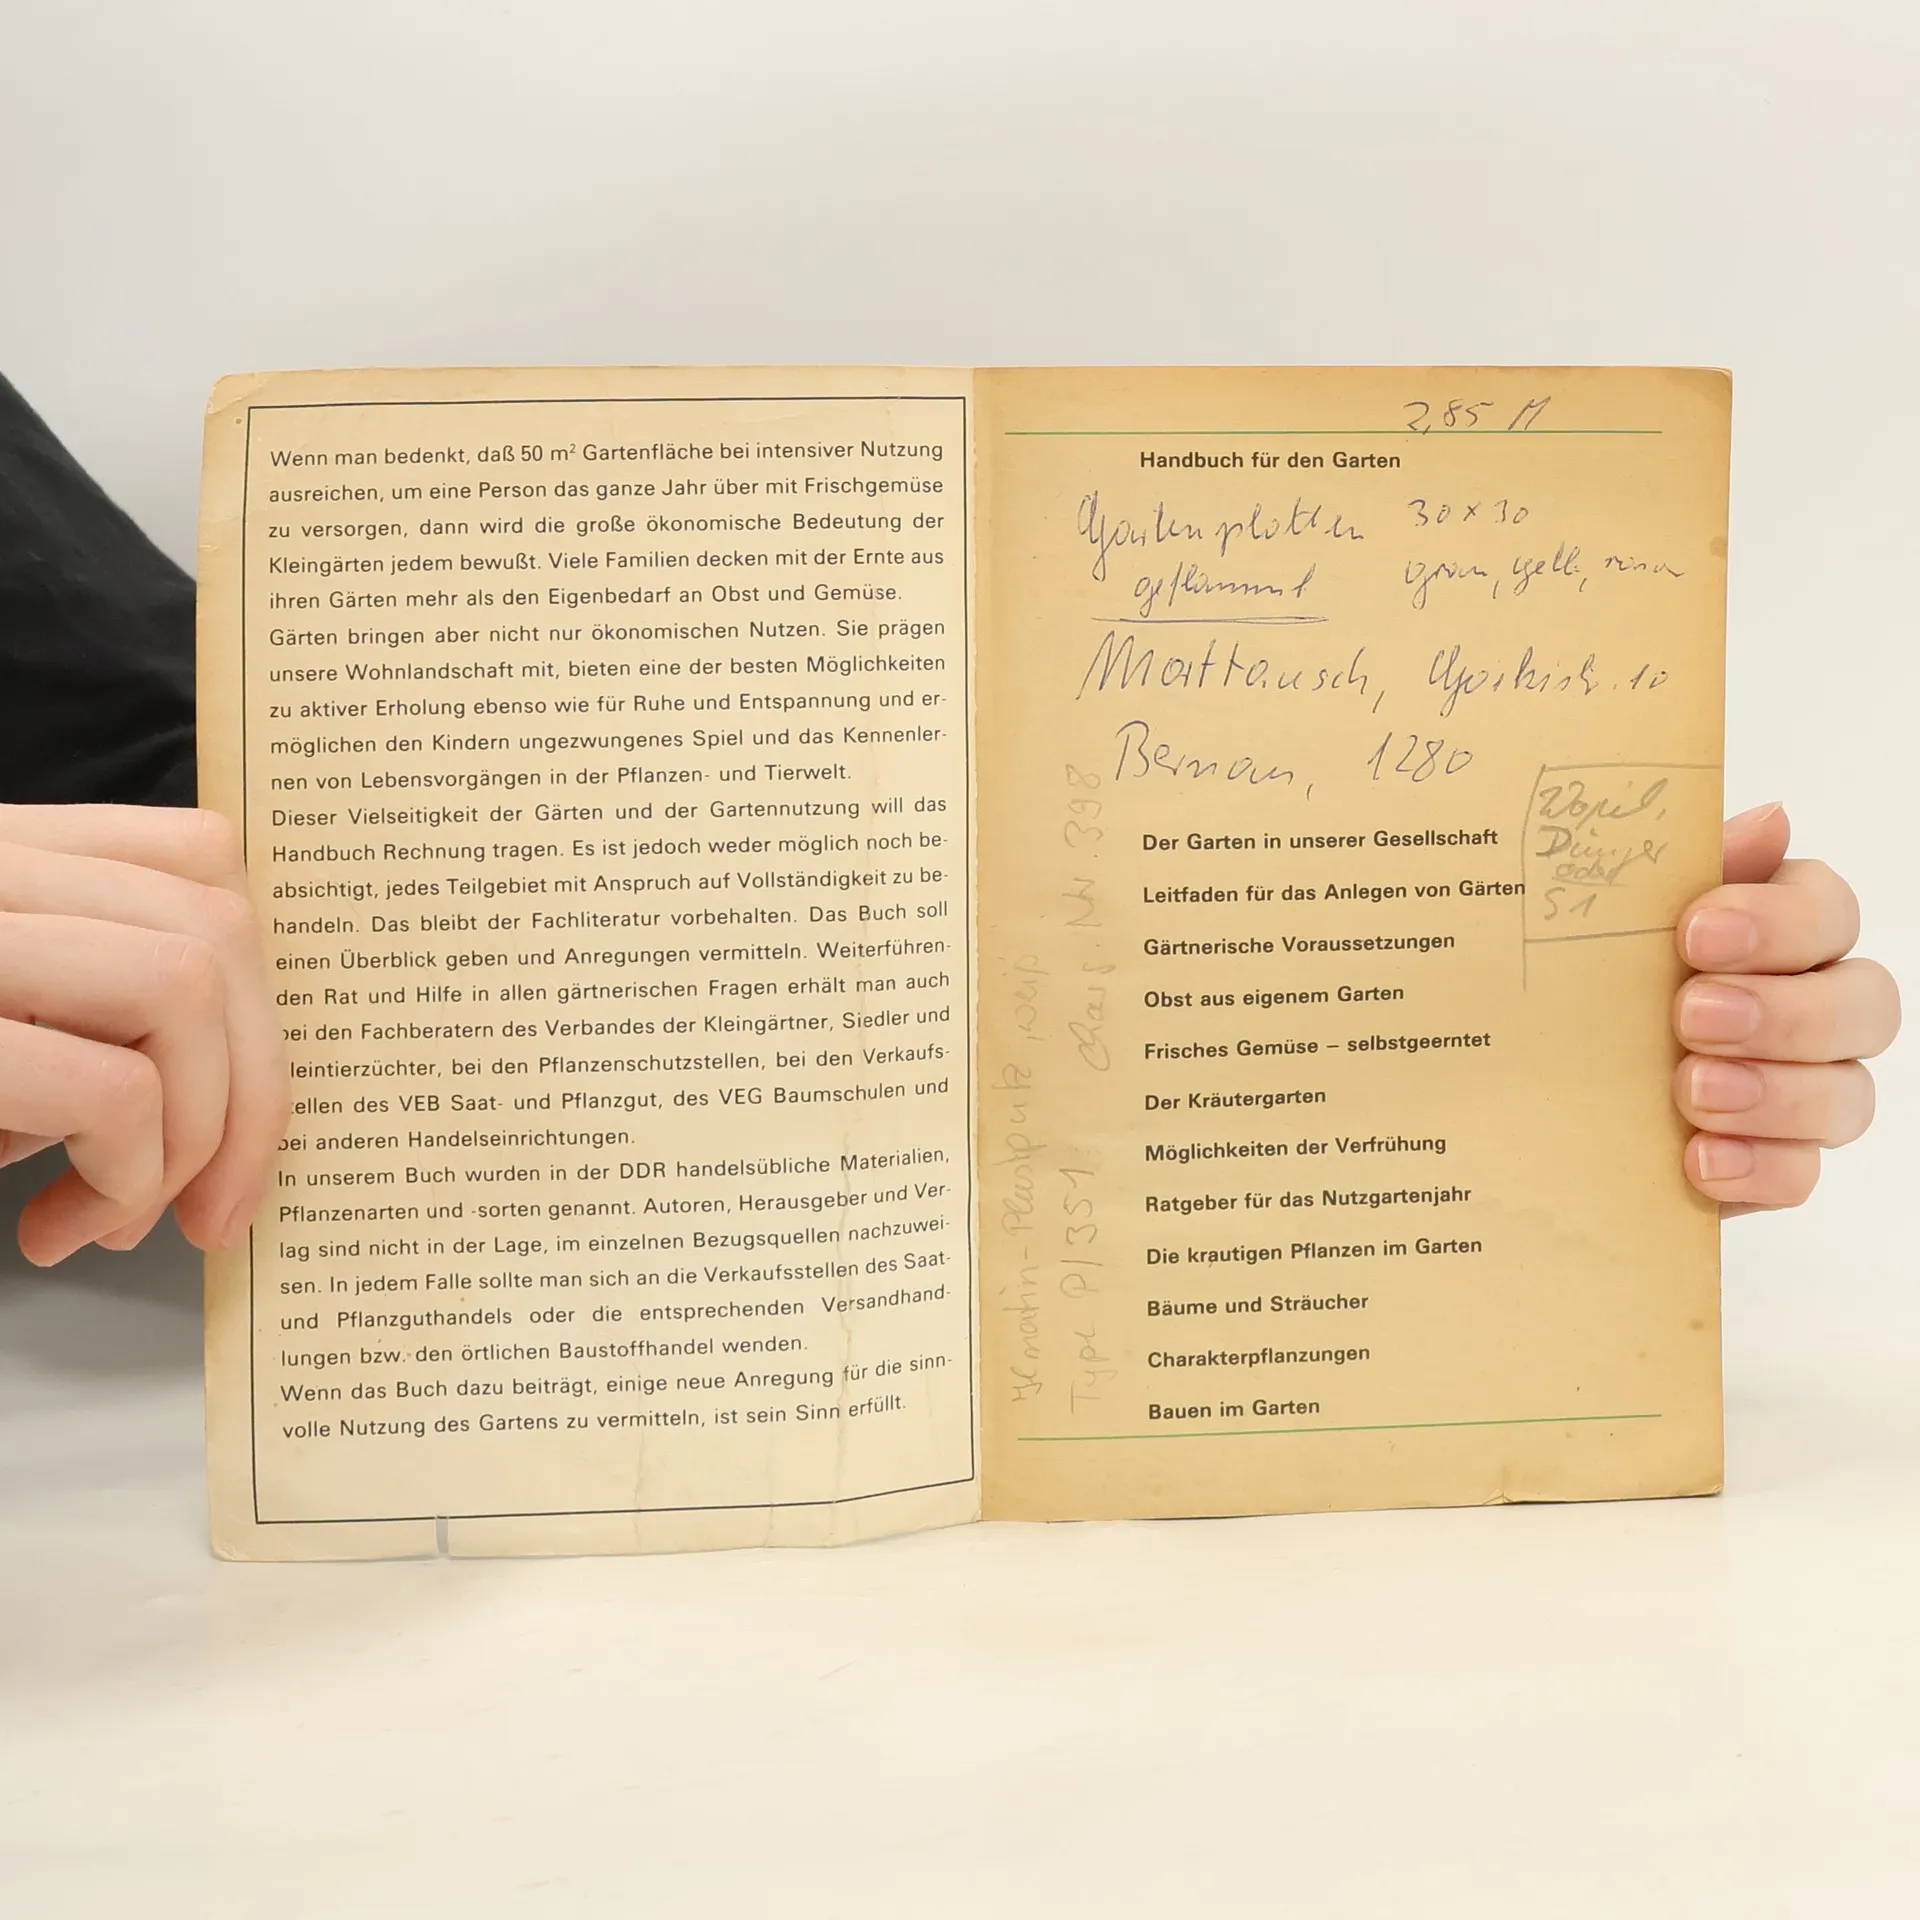 Wenn man bedenkt, daß 50 m² Gartenfläche bei intensiver Nutzung
ausreichen, um eine Person das ganze Jahr über mit Frischgemüse
zu versorgen, dann wird die große ökonomische Bedeutung der
Kleingärten jedem bewußt. Viele Familien decken mit der Ernte aus
ihren Gärten mehr als den Eigenbedarf an Obst und Gemüse.
Gärten bringen aber nicht nur ökonomischen Nutzen. Sie prägen
unsere Wohnlandschaft mit, bieten eine der besten Möglichkeiten
zu aktiver Erholung ebenso wie für Ruhe und Entspannung und er-
möglichen den Kindern ungezwungenes Spiel und das Kennenler-
nen von Lebensvorgängen in der Pflanzen- und Tierwelt.
Dieser Vielseitigkeit der Gärten und der Gartennutzung will das
Handbuch Rechnung tragen. Es ist jedoch weder möglich noch be-
absichtigt, jedes Teilgebiet mit Anspruch auf Vollständigkeit zu be-
handeln. Das bleibt der Fachliteratur vorbehalten. Das Buch soll
einen Überblick geben und Anregungen vermitteln. Weiterführen-
den Rat und Hilfe in allen gärtnerischen Fragen erhält man auch
bei den Fachberatern des Verbandes der Kleingärtner, Siedler und
leintierzüchter, bei den Pflanzenschutzstellen, bei den Verkaufs-
tellen des VEB Saat- und Pflanzgut, des VEG Baumschulen und
bei anderen Handelseinrichtungen.
In unserem Buch wurden in der DDR handelsübliche Materialien,
Pflanzenarten und -sorten genannt. Autoren, Herausgeber und Ver-
lag sind nicht in der Lage, im einzelnen Bezugsquellen nachzuwei-
sen. In jedem Falle sollte man sich an die Verkaufsstellen des Saat-
und Pflanzguthandels oder die entsprechenden Versandhand-
lungen bzw. den örtlichen Baustoffhandel wenden.
Wenn das Buch dazu beiträgt, einige neue Anregung für die sinn-
volle Nutzung des Gartens zu vermitteln, ist sein Sinn erfüllt.
2,85 M
Handbuch für den Garten
Gartenplatten 30 x 30
geflammt grau, gelb,
Mattausch, Gorkistr. 10
Bernau, 1280
Dünger
oder
S1
Der Garten in unserer Gesellschaft
Leitfaden für das Anlegen von Gärten
Gärtnerische Voraussetzungen
Obst aus eigenem Garten
Frisches Gemüse – selbstgeerntet
Der Kräutergarten
Möglichkeiten der Verfrühung
Ratgeber für das Nutzgartenjahr
Die krautigen Pflanzen im Garten
Bäume und Sträucher
Charakterpflanzungen
Bauen im Garten
weiß
Type P/351 Char. Nr. 398